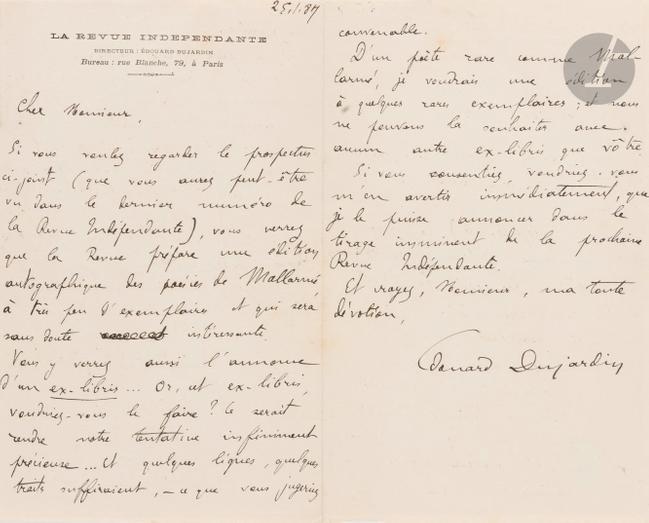 25.1.87
LA REVUE INDEPENDANTE
DIRECTEUR : ÉDOUARD DUJARDIN
Bureau : rue Blanche, 79, à Paris
Cher Monsieur,
Si vous voulez regarder le prospectus
ci-joint (que vous aurez peut-être
vu dans le dernier numéro de
la Revue Indépendante), vous verrez
que la Revue prépare une édition
autographique des poésies de Mallarmé
à très peu d'exemplaires et qui sera
sans doute intéressante.
Vous y verrez aussi l'annonce
d'un ex-libris... Or, cet ex-libris,
voudriez-vous le faire ? Ce serait
rendre notre tentative infiniment
précieuse... Et quelques lignes, quelques
traits suffiraient, — ce que vous jugeriez
convenable.
D'un poète rare comme Mal-
larmé, je voudrais une édition
à quelques rares exemplaires ; et nous
ne pouvons la souhaiter avec
aucun autre ex-libris que vôtre.
Si vous consentiez, voudriez-vous
m'en avertir immédiatement, que
je le puisse annoncer dans le
tirage imminent de la prochaine
Revue Indépendante.
Et croyez, Monsieur, ma toute
dévotion,
Edouard Dujardin